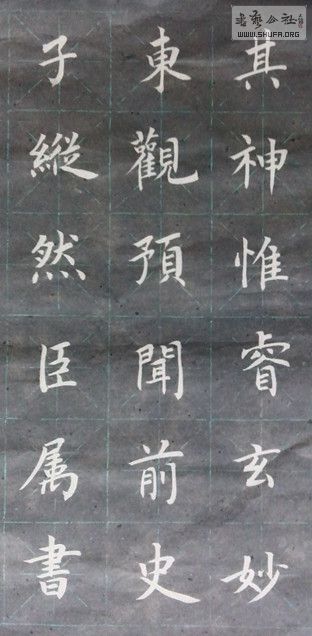 書藝公社
WWW.SHUFA.ORG
其神惟睿玄妙
東觀預聞前史
子縱然臣属書